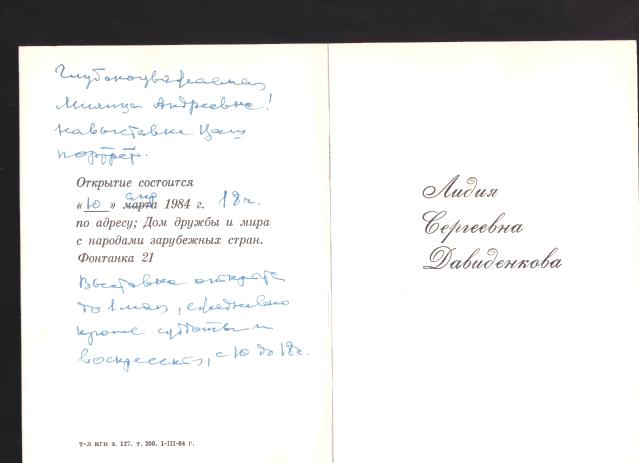 Глубокоуважаемая
Милица Андреевна!
на выставке Ваш
портрет.
Открытие состоится
«10» апр марта 1984 г. 18 ч.
по адресу; Дом дружбы и мира
с народами зарубежных стран.
Фонтанка 21
Выставка открыта
до 1 мая, ежедневно
кроме субботы и
воскресенья, с 10 до 18 г.
т-л КГИ з. 127. т. 200. 1-III-84 г.
Лидия
Сергеевна
Давиденкова